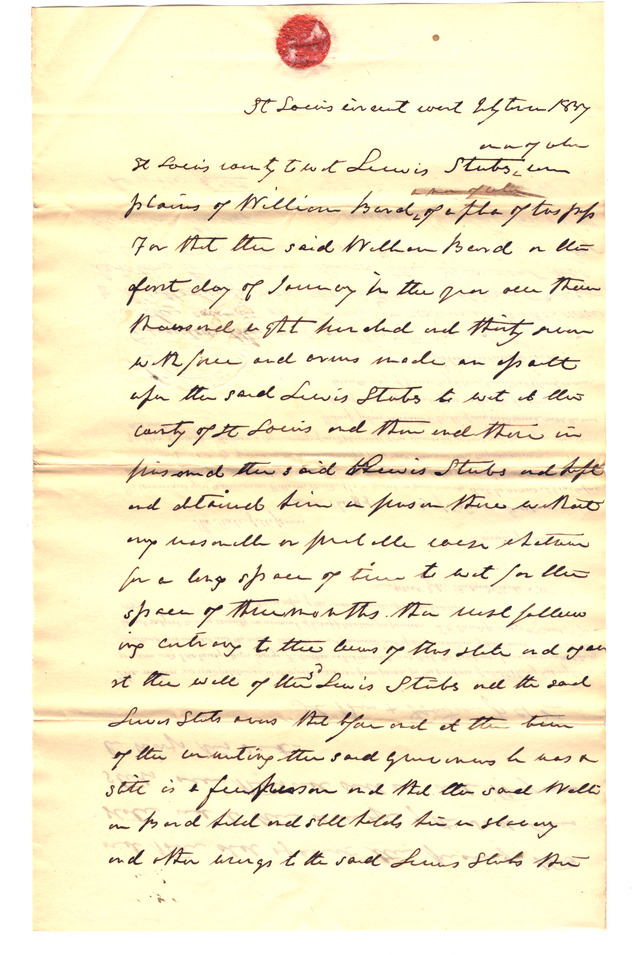 St Louis circuit court July term 1837
man of color
St Louis county to wit Lewis Stubs, com
a man of color
plains of William Bard, of a plea of trespass
For that the said William Bard on the
first day of January in the year one thou
thousand eight hundred and thirty seven
with force and arms made an assalt
upon the said Lewis Stubs to wit at the
county of St Louis and then and there im
prisoned the said Lewis Stubs and kept
and detained him in prison there without
any reasonable or probable cause whatever
for a long space of time to wit for the
space of three months then next follow
ing contrary to the laws of this state and again
st the will of the sd Lewis Stubs and the said
Lewis Stubs avers that before and at the time
of the committing the said grievances he was a
still is a free person and that the said Willi
am Bard held and still holds him in slavery
and other wrongs to the said Lewis Stubs then